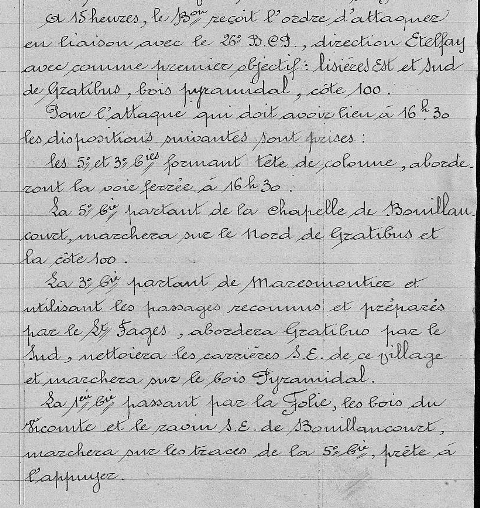 A 15 heures, le Bon reçoit l'ordre d'attaquer
en liaison avec le 26e B.C.P., direction Etelfay
avec comme premier objectif : lisières Est et Sud
de Gratibus, bois pyramidal, côte 100.
Pour l'attaque qui doit avoir lieu à 16h30
les dispositions suivantes sont prises :
les 5e et 3e Cies formant tête de colonne, aborde-
ront la voie ferrée à 16h30.
La 5e Cie partant de la chapelle de Bouillan-
court, marchera sur le Nord de Gratibus et
la côte 100.
La 3e Cie partant de Maresmontier et
utilisant les passages reconnus et préparés
par le Lt Fages, abordera Gratibus par le
Sud, nettoiera les carrières S.E. de ce village
et marchera sur le bois Pyramidal.
La 1ère Cie passant par la Folie, les bois du
Vicomte et le ravin S.E. de Bouillancourt,
marchera sur les traces de la 5e Cie, prête à
l'appuyer.